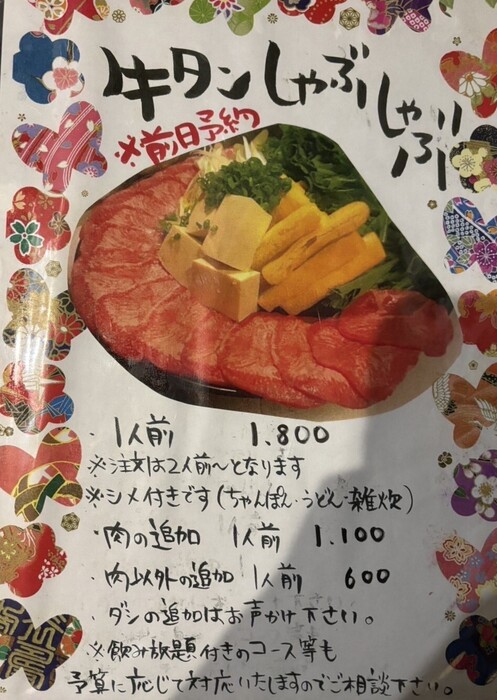 牛タンしゃぶしゃぶ
※前日予約
・1人前 1.800
※注文は2人前〜となります
※シメ付きです(ちゃんぽん・うどん・雑炊)
・肉の追加 1人前 1.100
・肉以外の追加 1人前 600
・ダシの追加はお声かけ下さい。
※飲み放題付きのコース等も
予算に応じて対応いたしますのでご相談下さい。